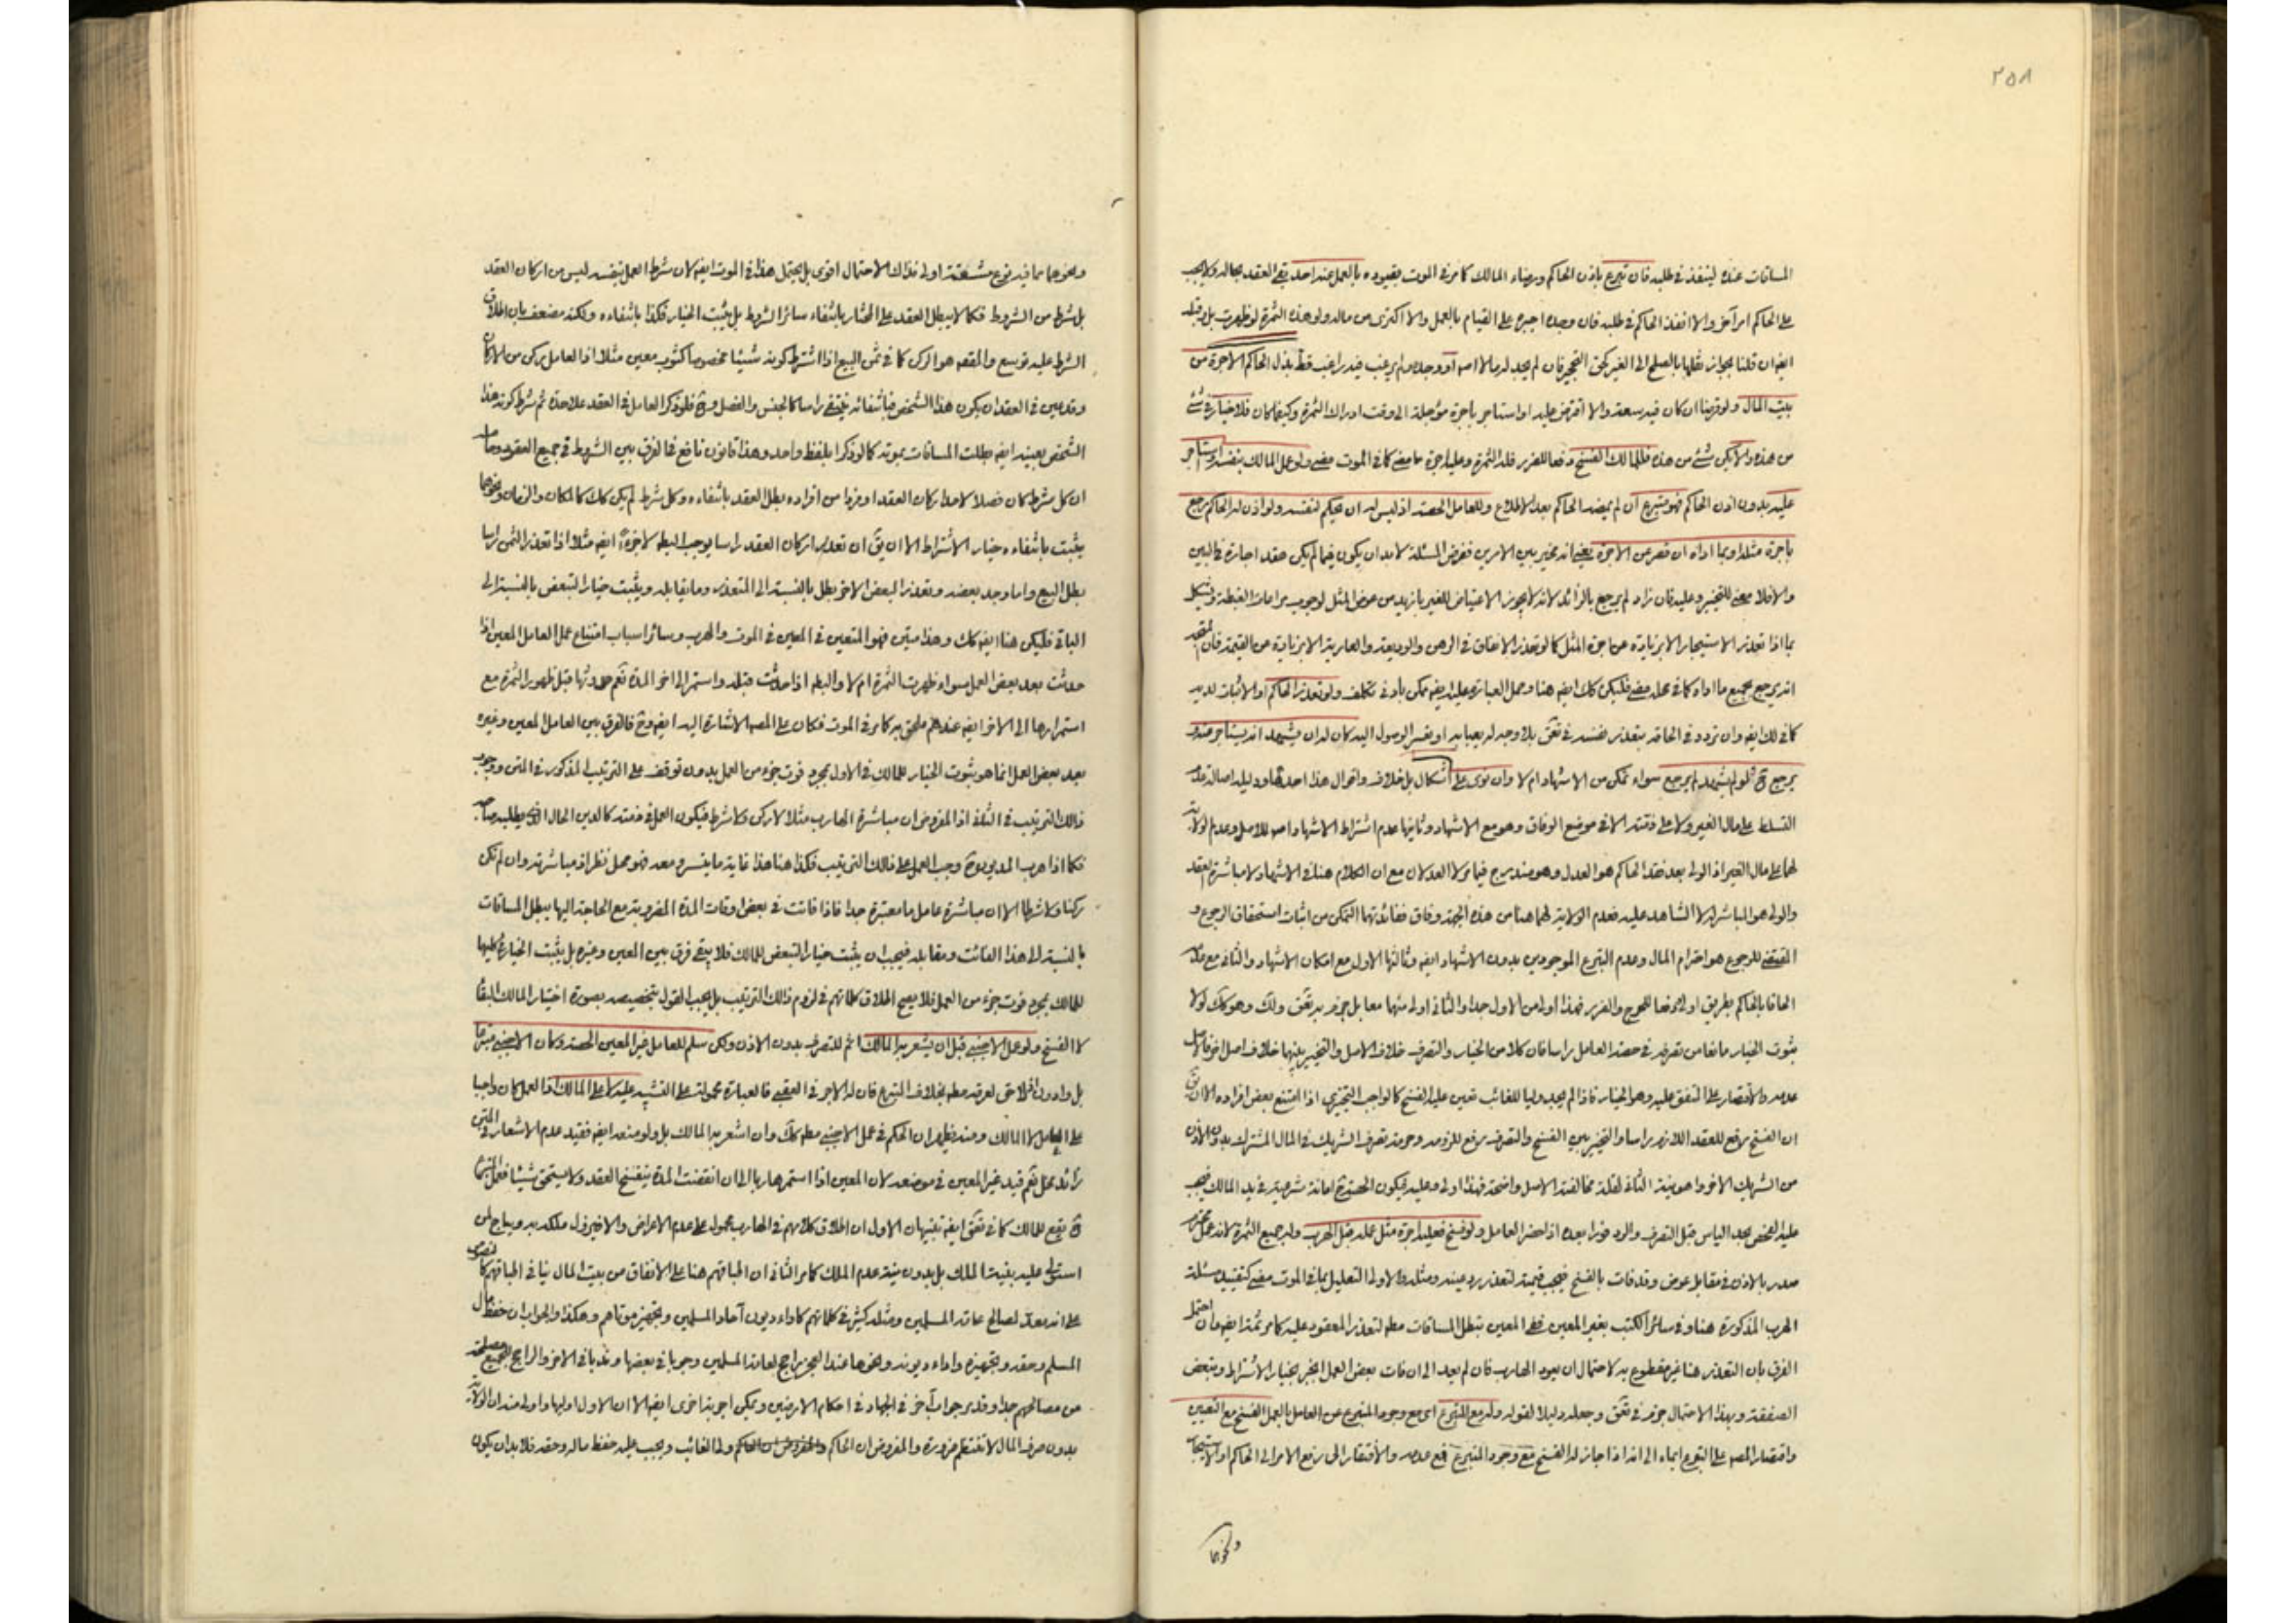 ٢٥٨
المساقات عنده لينفذ في طلبه فان تبرع باذن الحاكم ورضاء المالك كما مر في الموت بقيوده بالعمل عنه احد بقى العقد بحاله ولا يجب
على الحاكم امر آخر والا انفذ الحاكم في طلبه فان وجده اجبره على القيام بالعمل والا اكترى من ماله ولو هذه الثمرة لو ظهرت بل وقبله
ايضا ان قلنا بجواز نقلها بالصلح الى الغير فان لم يجد له مالا او وجده ولم يرغب فيه راغب قط بذل الحاكم الاجرة من
بيت المال ولو قرضا ان كان فيه سعة والا اقترض عليه او استاجر باجرة مؤجلة الى وقت ادراك الثمرة وكيفما كان فلا خيار في شئ
من هذه والا يكن شئ من هذه فللمالك الفسخ دفعا للضرر فله الثمرة وعليه اجرة ما مضى كما في الموت مضى ولو عمل المالك بنفسه او استاجر
عليه بدون اذن الحاكم فهو متبرع ان لم يمضه الحاكم بعد الاطلاع وللعامل الحصة اذ ليس له ان يحكم لنفسه ولو اذن له الحاكم رجع
باجرة مثله او بما اداه ان قصر عن الاجرة يعني انه مخير بين الامرين ففرض المسئلة لا بد ان يكون فيما لم يكن عقد اجارة في البين
والا فلا معنى للتخيير وعليه فان زاد لم يرجع بالزائد لانه لا يجوز الاعتياض للغير بازيد من عوض المثل لوجوب مراعات الغبطة ويشكل
بما اذا تعذر الاستيجار الا بزيادة عن اجرة المثل كما لو تعذر الانفاق في الرهن والوديعة والعارية الا بزيادة عن القيمة فان
انه يرجع بجميع ما اداه كما في محله مضى فليكن كك ايضا هنا وحمل العبارة عليه ايضا ممكن بادنى تكلف ولو تعذر الحاكم او الاثبات لديه
كما في لك ايضا وان تردد في الحاقه بتعذر نفسه في تعق بلا وجه له يعبا به او بعسر الوصول اليه كان له ان يشهد انه يستاجر عنه و
يرجع ح فلو لم يشهد لم يرجع سواء تمكن من الاشهاد ام لا وان نوى على اشكال بل خلاف واقوال هذا احدها ودليله اصالة عدم
التسلط على مال الغير ولا على ذمته الا في موضع الوفاق وهو مع الاشهاد وثانيها عدم اشتراط الاشهاد للاصل وعدم
لهما على مال الغير اذ الولي بعد فقد الحاكم هو العدل وهو مندرج فيها لا العدلان مع ان الكلام هنا في الاشهاد لا مباشرة العقد
والولي هو المباشر له لا الشاهد عليه فعدم الولاية لهما هنا من هذه الجهة وفاق ففائدتهما التمكن من اثبات استحقاق الرجوع و
المقتضي للرجوع هو احترام المال وعدم التبرع الموجودين بدون الاشهاد ايضا وثالثها الاول مع امكان الاشهاد والثاني مع عدمه
الحاقا بالحاكم بطريق اولى دفعا للحرج والضرر فهذا اولى من الاول جدا والثاني اولى منهما معا بل جزم به تعق ولك وهو كك لولا
ثبوت الخيار مانعا من تصرفه في حصة العامل راسا فان كلا من الخيار والتصرف خلاف الاصل والتخيير بينهما خلاف اصل اخر
عدمه والاقتصار على المتفق عليه وهو الخيار فاذا لم يجد وليا للغائب تعين عليه الفسخ كالواجب التخييري اذا امتنع بعض افراده
ان الفسخ رفع للعقد اللازم راسا والتخيير بين الفسخ والتصرف رفع للزومه وحرمة تصرف الشريك في المال المشترك بدون اذن
من الشريك الاخر واهونية الثاني لقلة مخالفته الاصل واضحة فهذا اولى وعليه فيكون الحصة ح امانة شرعية في يد المالك
عليه الفحص بحد الياس قبل التصرف والرد فورا بعده اذا حضر العامل ولو فسخ فعليه اجرة مثل عمله قبل الهرب وله جميع الثمرة لانه عمل محترم
صدر بالاذن في مقابل عوض وقد فات بالفسخ فيجب قيمته لتعذر رد عينه ومثله والاولى التعليل بما في الموت مضى كتقييد مسئلة
الهرب المذكورة هنا وفي سائر الكتب بغير المعين ففي المعين تبطل المساقات لتعذر المعقود عليه كما مر ثمة ايضا وان احتمل
الفرق بان التعذر هنا غير مقطوع به لاحتمال ان يعود الهارب فان لم يعد الى ان فات بعض العمل انجبر بخيار الاشتراط وتبعض
الصفقة وبهذا الاحتمال جزم في تعق وجعله دليلا لقوله وله مع المتبرع اى مع وجود المتبرع عن العامل بالعمل الفسخ مع التعيين
واقتصار المصه على التبرع ايماء الى انه اذا جاز له الفسخ مع وجود المتبرع فمع عدمه والافتقار الى رفع الامر الى الحاكم او الاستيجار
ونحوها
ونحوهما مما فيه نوع مشقة اولى فذاك الاحتمال اقوى بل يحتمل هذا في الموت ايضا لان شرط العمل بنفسه ليس من اركان العقد
بل شرط من الشروط فكما لا يبطل العقد على المختار بانتفاء سائر الشروط بل يثبت الخيار فكذا بانتفاءه ولكنه مضعف بان اطلاق
الشرط عليه توسع والمقصود هو الركن كما في ثمن البيع اذا اشترط كونه شيئا مخصوصا كثوب معين مثلا اذ العامل ركن من الاركان
وقد عين في العقد ان يكون هذا الشخص فبانتفائه ينتفى راسا كالجنس والفصل وح فلو ذكر العامل في العقد علاحدة ثم شرط كونه هذا
الشخص بعينه ايضا بطلت المساقات بموته كما لو ذكرا بلفظ واحد وهذا قانون نافع في الفرق بين الشروط في جميع العقود وحاصله
ان كل شرط كان فصلا لاحد اركان العقد او فردا من افراده بطل العقد بانتفاءه وكل شرط لم يكن كك كالمكان والزمان ونحوهما
يثبت بانتفاءه خيار الاشتراط الا ان يق ان تعذر اركان العقد راسا يوجب البطلان لا جزءه ايضا مثلا اذا تعذر الثمن راسا
بطل البيع واما وجد بعضه وتعذر البعض الاخر بطل بالنسبة الى المتعذر وما يقابله ويثبت خيار التبعض بالنسبة الى
الباقي فليكن هنا ايضا كك وهذا متين فهو المتعين في المعين في الموت والهرب وسائر اسباب امتناع عمل العامل المعين اذا
حدثت بعد بعض العمل سواء ظهرت الثمرة ام لا والبطلان اذا حدثت قبله واستمر الى اخر المدة نعم حدوثها قبل ظهور الثمرة مع
استمرارها الى الاخر ايضا عندهم ملحق به كما مر في الموت فكان على المصه الاشارة اليه ايضا وح فالفرق بين العامل المعين وغيره
بعد بعض العمل انما هو ثبوت الخيار للمالك في الاول بمجرد فوت جزء من العمل بدون توقف على الترتيب المذكور في المتن ووجوب
ذلك الترتيب في الثاني اذ المفروض ان مباشرة الهارب مثلا لا ركن ولا شرط فيكون العمل في ذمته كالدين الحال الذي يطلبه صاحبه
فكما اذا هرب المديون ح وجب العمل على ذلك الترتيب فكذا هنا هذا غاية ما يتسر ومعه فهو محل نظر اذ مباشرته وان لم تكن
ركنا ولا شرطا الا ان مباشرة عامل ما معتبرة جدا فاذا فاتت في بعض اوقات المدة المضروبة مع الحاجة اليها يبطل المساقات
بالنسبة الى هذا الفائت ومقابله فيجب ان يثبت خيار التبعض للمالك فلا يبقى فرق بين المعين وغيره بل يثبت الخيار في كليهما
للمالك بمجرد فوت جزء من العمل فلا يصح اطلاق كلماتهم في لزوم ذلك الترتيب بل يجب القول بتخصيصه بصورة اختيار المالك البقاء
لا الفسخ ولو عمل الاجنبي قبل ان يشعر به المالك اثم للتصرف بدون الاذن ولكن سلم للعامل غير المعين الحصة وكان الاجنبي متبرعا
بل وان لم يعرفه بخلاف التبرع فان له الاجر في العقبى فالعبارة محمولة على التشبيه عليه لا على المالك اذ العمل كان واجبا
على العامل لا المالك ومنه يظهر ان الحكم في عمل الاجنبي مطلقا كك وان اشعر به المالك بل ولو منعه ايضا فقيد عدم الاشعار في المتن
زائد مخل نعم قيد غير المعين في موضعه لان المعين اذا استمر هاربا الى ان انقضت المدة ينفسخ العقد ولا يستحق شيئا فعمل المتبرع
ح يقع للمالك كما في تعق ايضا تنبيهان الاول ان اطلاق كلامهم في الهارب محمول على عدم الاعراض والا فيزول ملكه به ويباح لمن
استولى عليه بنية الملك بل بدون نية عدم الملك كما مر الثاني ان اطباقهم هنا على الانفاق من بيت المال ينافي اطباقهم
على انه معد لمصالح عامة المسلمين ومثله كثير في كلماتهم كاداء ديون آحاد المسلمين وتجهيز موتاهم وهكذا والجواب ان حفظ مال
المسلم وحقه وتجهيزه واداء ديونه ونحوها عند العجز راجع لعامة المسلمين وجوبا في بعضها وندبا في الاخر والراجح للجميع مصلحة
من مصالحهم جدا وقد مر جواب آخر في الجهاد في احكام الارضين ويمكن اجوبة اخرى ايضا الا ان الاول اوليها واولى منه ان الولاية
بدون صرف المال لا تنتظم ضرورة والمفروض ان الحاكم ولي الغائب ويجب عليه حفظ ماله وحقه فلا بد ان يكون